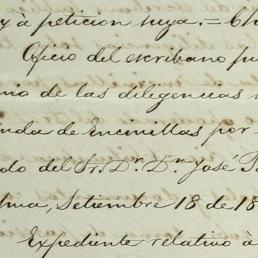 y à peticion suya. = Ch
Oficio del escribano pú
nio de las diligencias
enda de Encinillas por
do del Sr. Dr. Dn. José
hua, Setiembre 18 de 18
Expediente relativo à